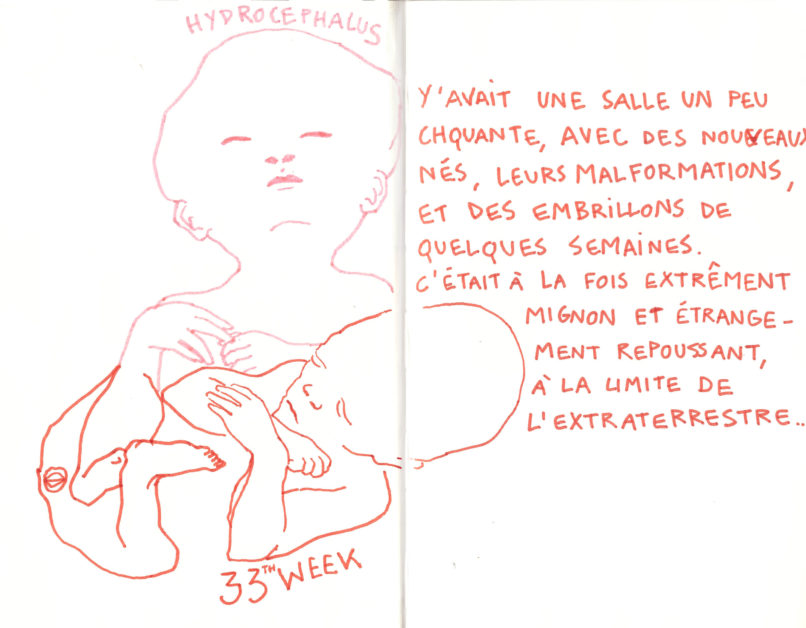 HYDROCEPHALUS
33TH WEEK
Y'AVAIT UNE SALLE UN PEU
CHQUANTE, AVEC DES NOUVEAUX
NÉS, LEURS MALFORMATIONS,
ET DES EMBRILLONS DE
QUELQUES SEMAINES.
C'ÉTAIT À LA FOIS EXTRÊMENT
MIGNON ET ÉTRANGE-
MENT REPOUSSANT,
À LA LIMITE DE
L'EXTRATERRESTRE..